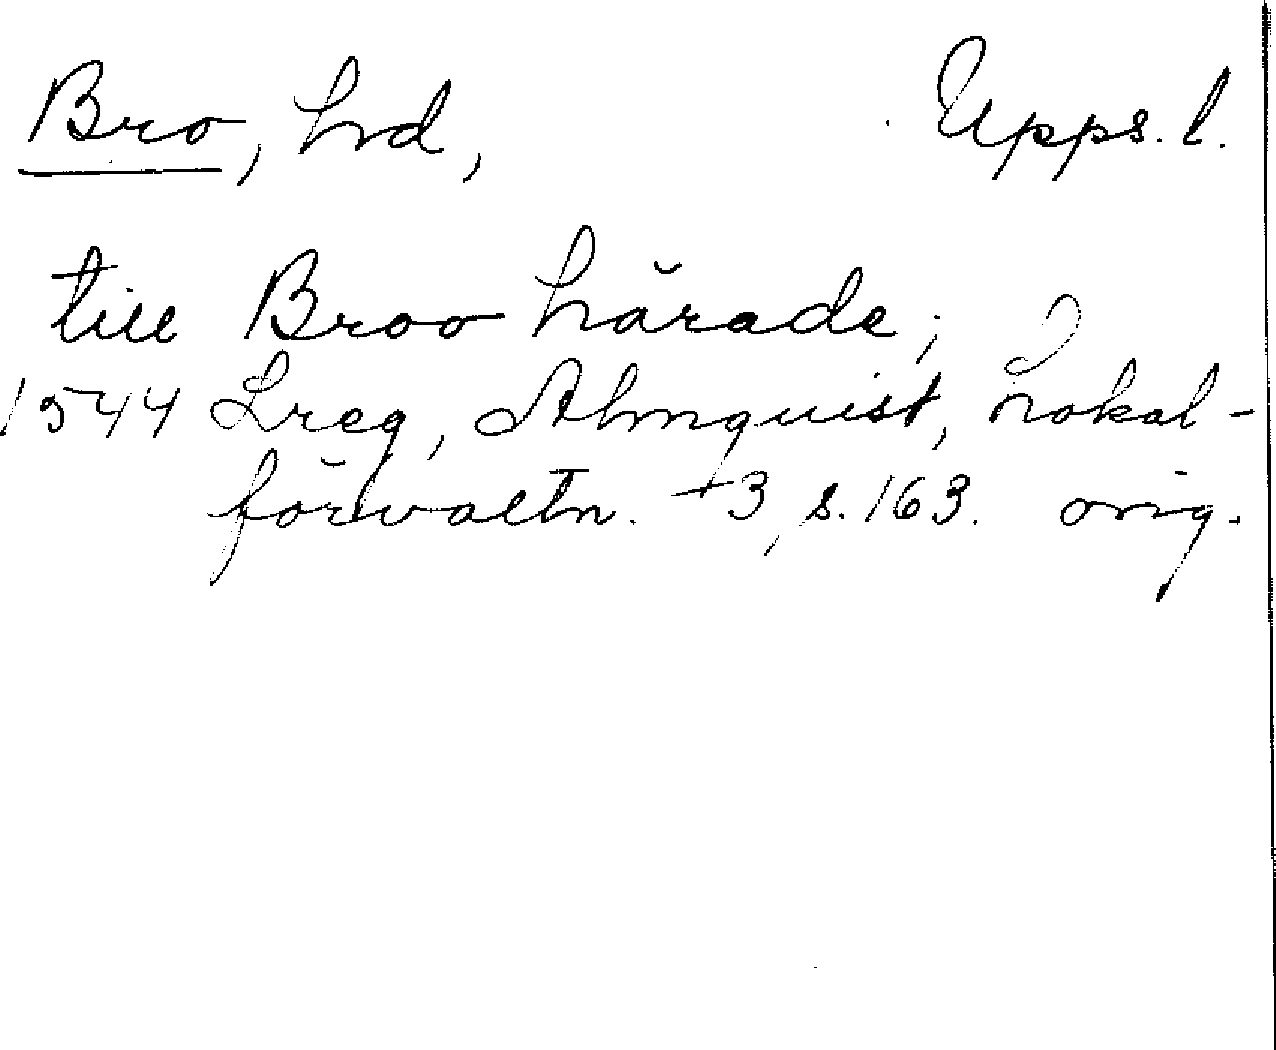 Bro, hrd, Upps. l.
till Broo härade;
1544 Lreg, Almquist, Lokal-
förvaltn. +3, s. 163. orig.